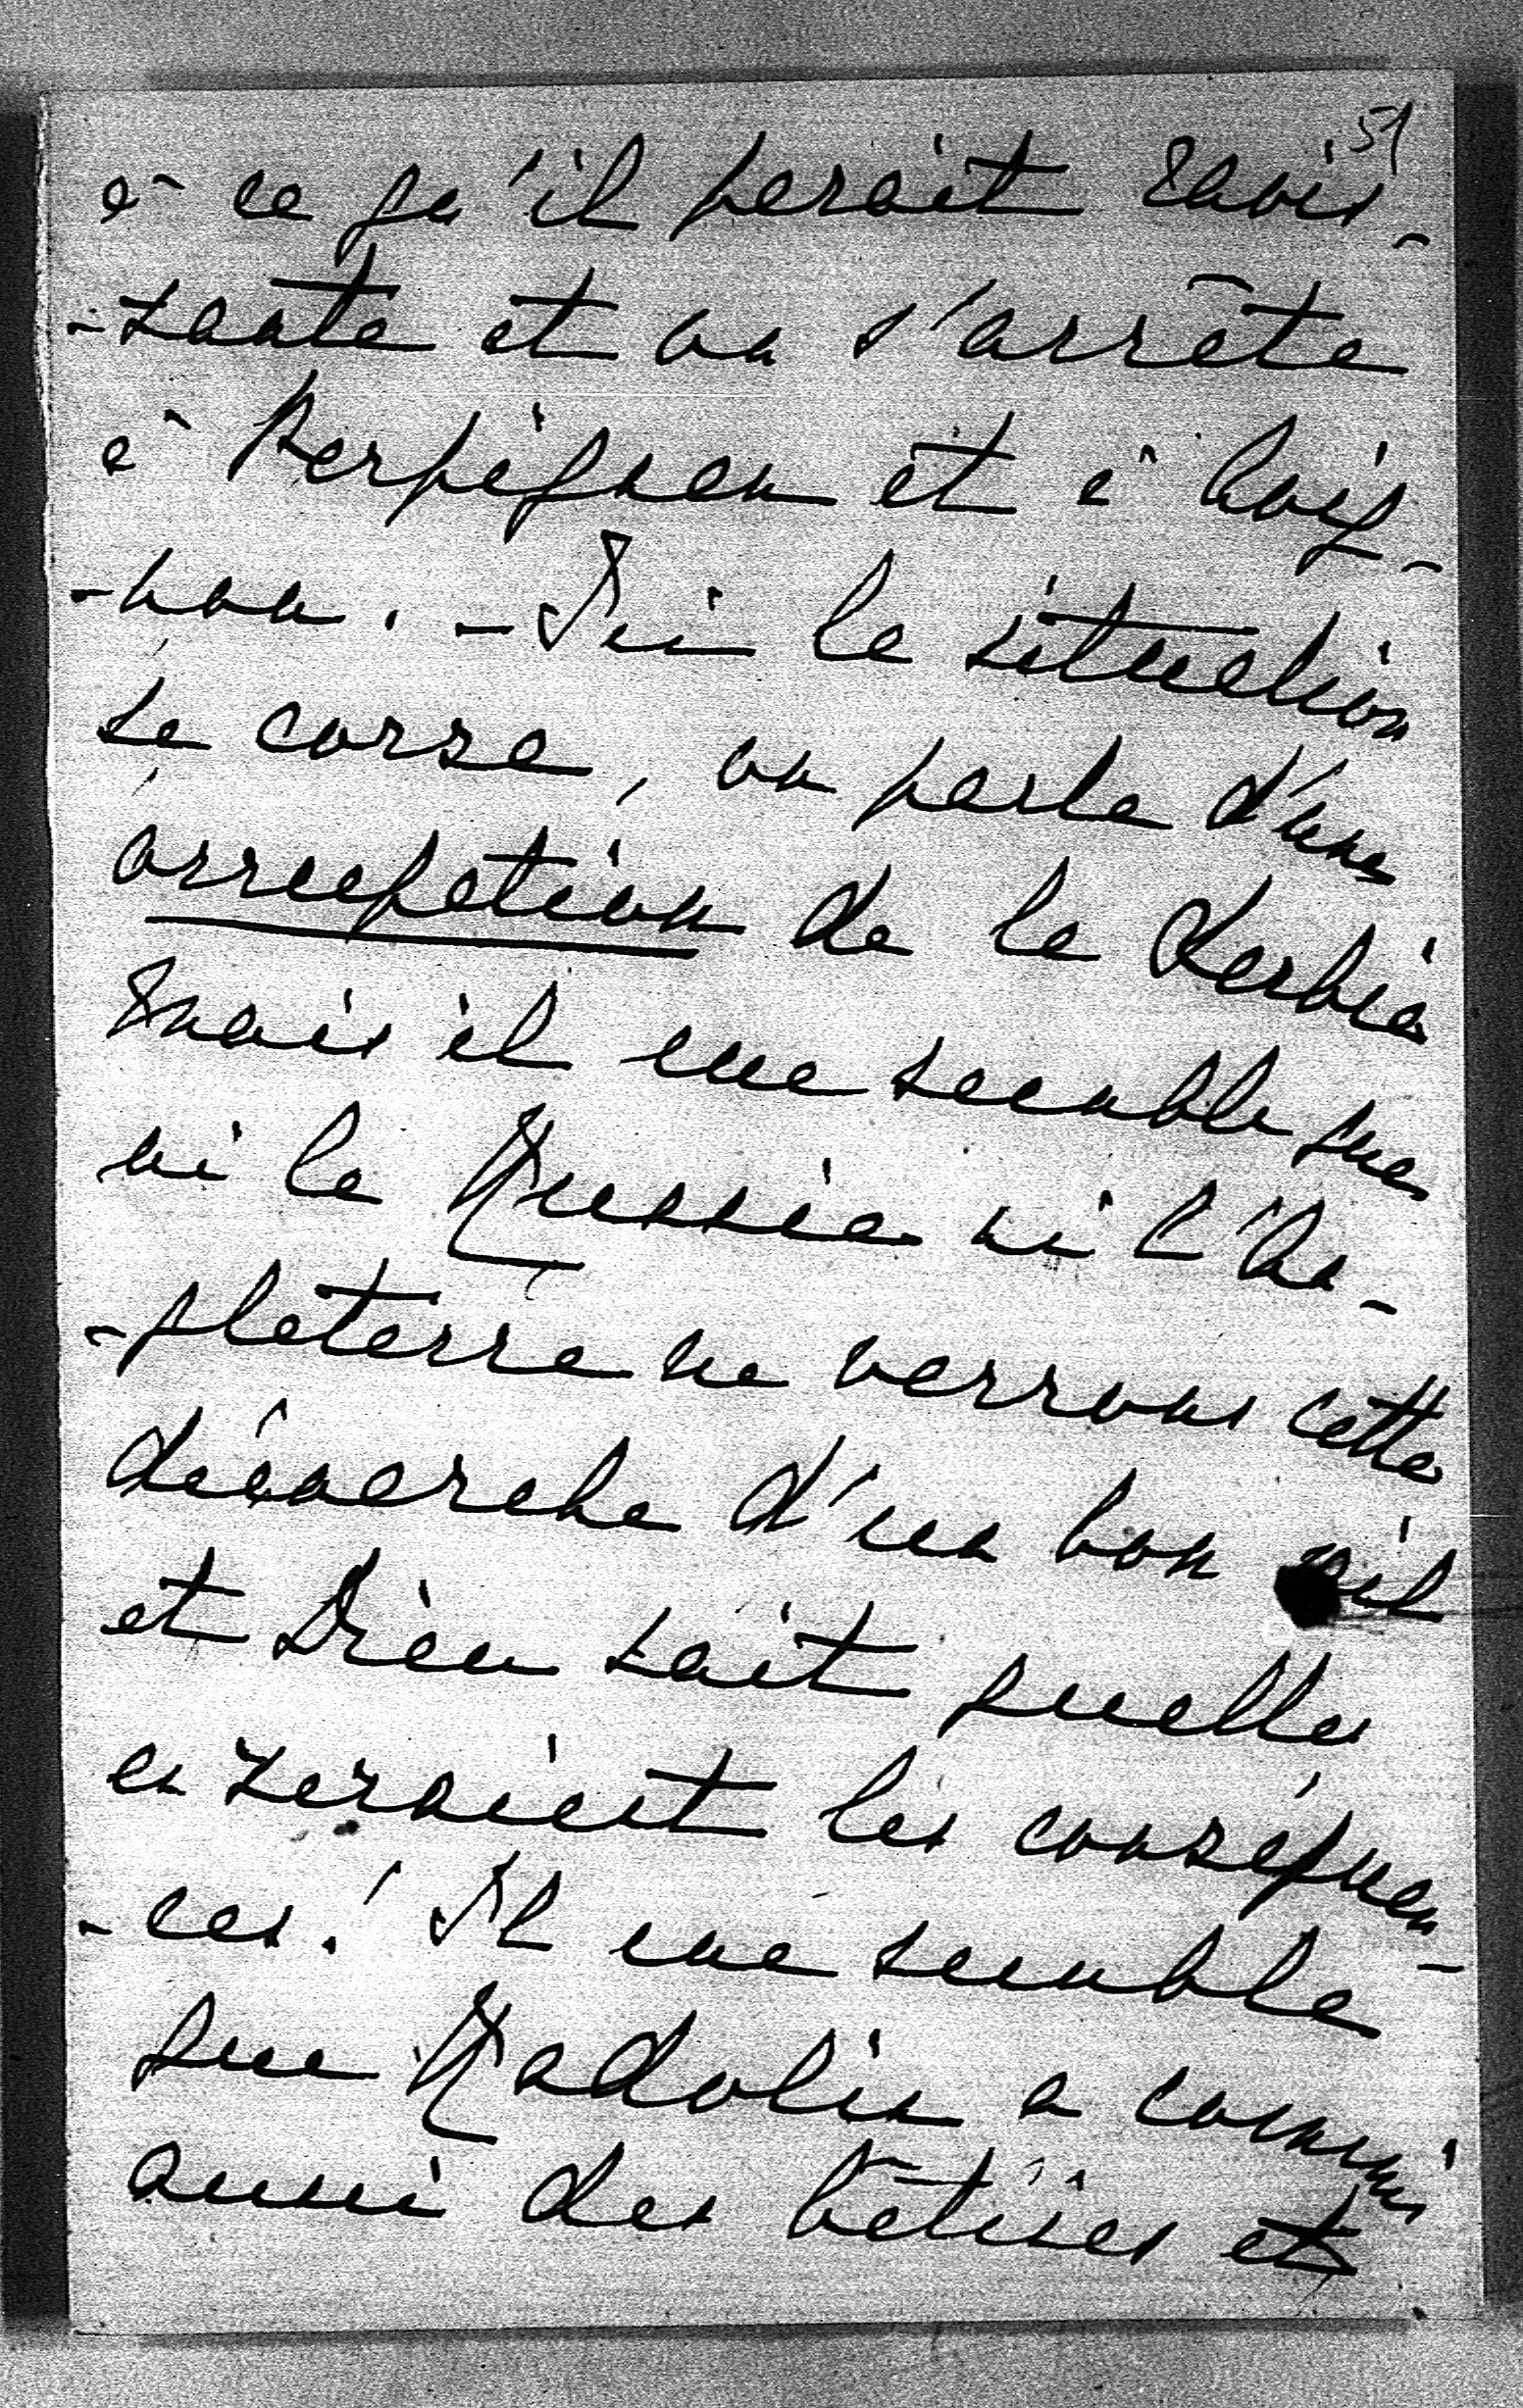 51
à ce qu'il parait ravis-
-sante et on s'arrête
à Perpignan et à Avig-
-non. - Ici la situation
se corse, on parle d'une
arrogation de la Serbie
mais il me semble que
ni la Russie ni l'An-
-gleterre ne verrons cette
démarche d'un bon œil
et Dieu sait quelles
en seraient les conséquen-
-ces! Il me semble
que Radolin a commis
aussi des bêtises et